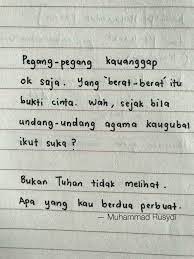 Pegang-pegang kauanggap
ok saja. Yang "berat-berat" itu
bukti cinta. Wah, sejak bila
undang-undang agama kaugubal
ikut suka?
Bukan Tuhan tidak melihat.
Apa yang kau berdua perbuat.
— Muhammad Rusydi